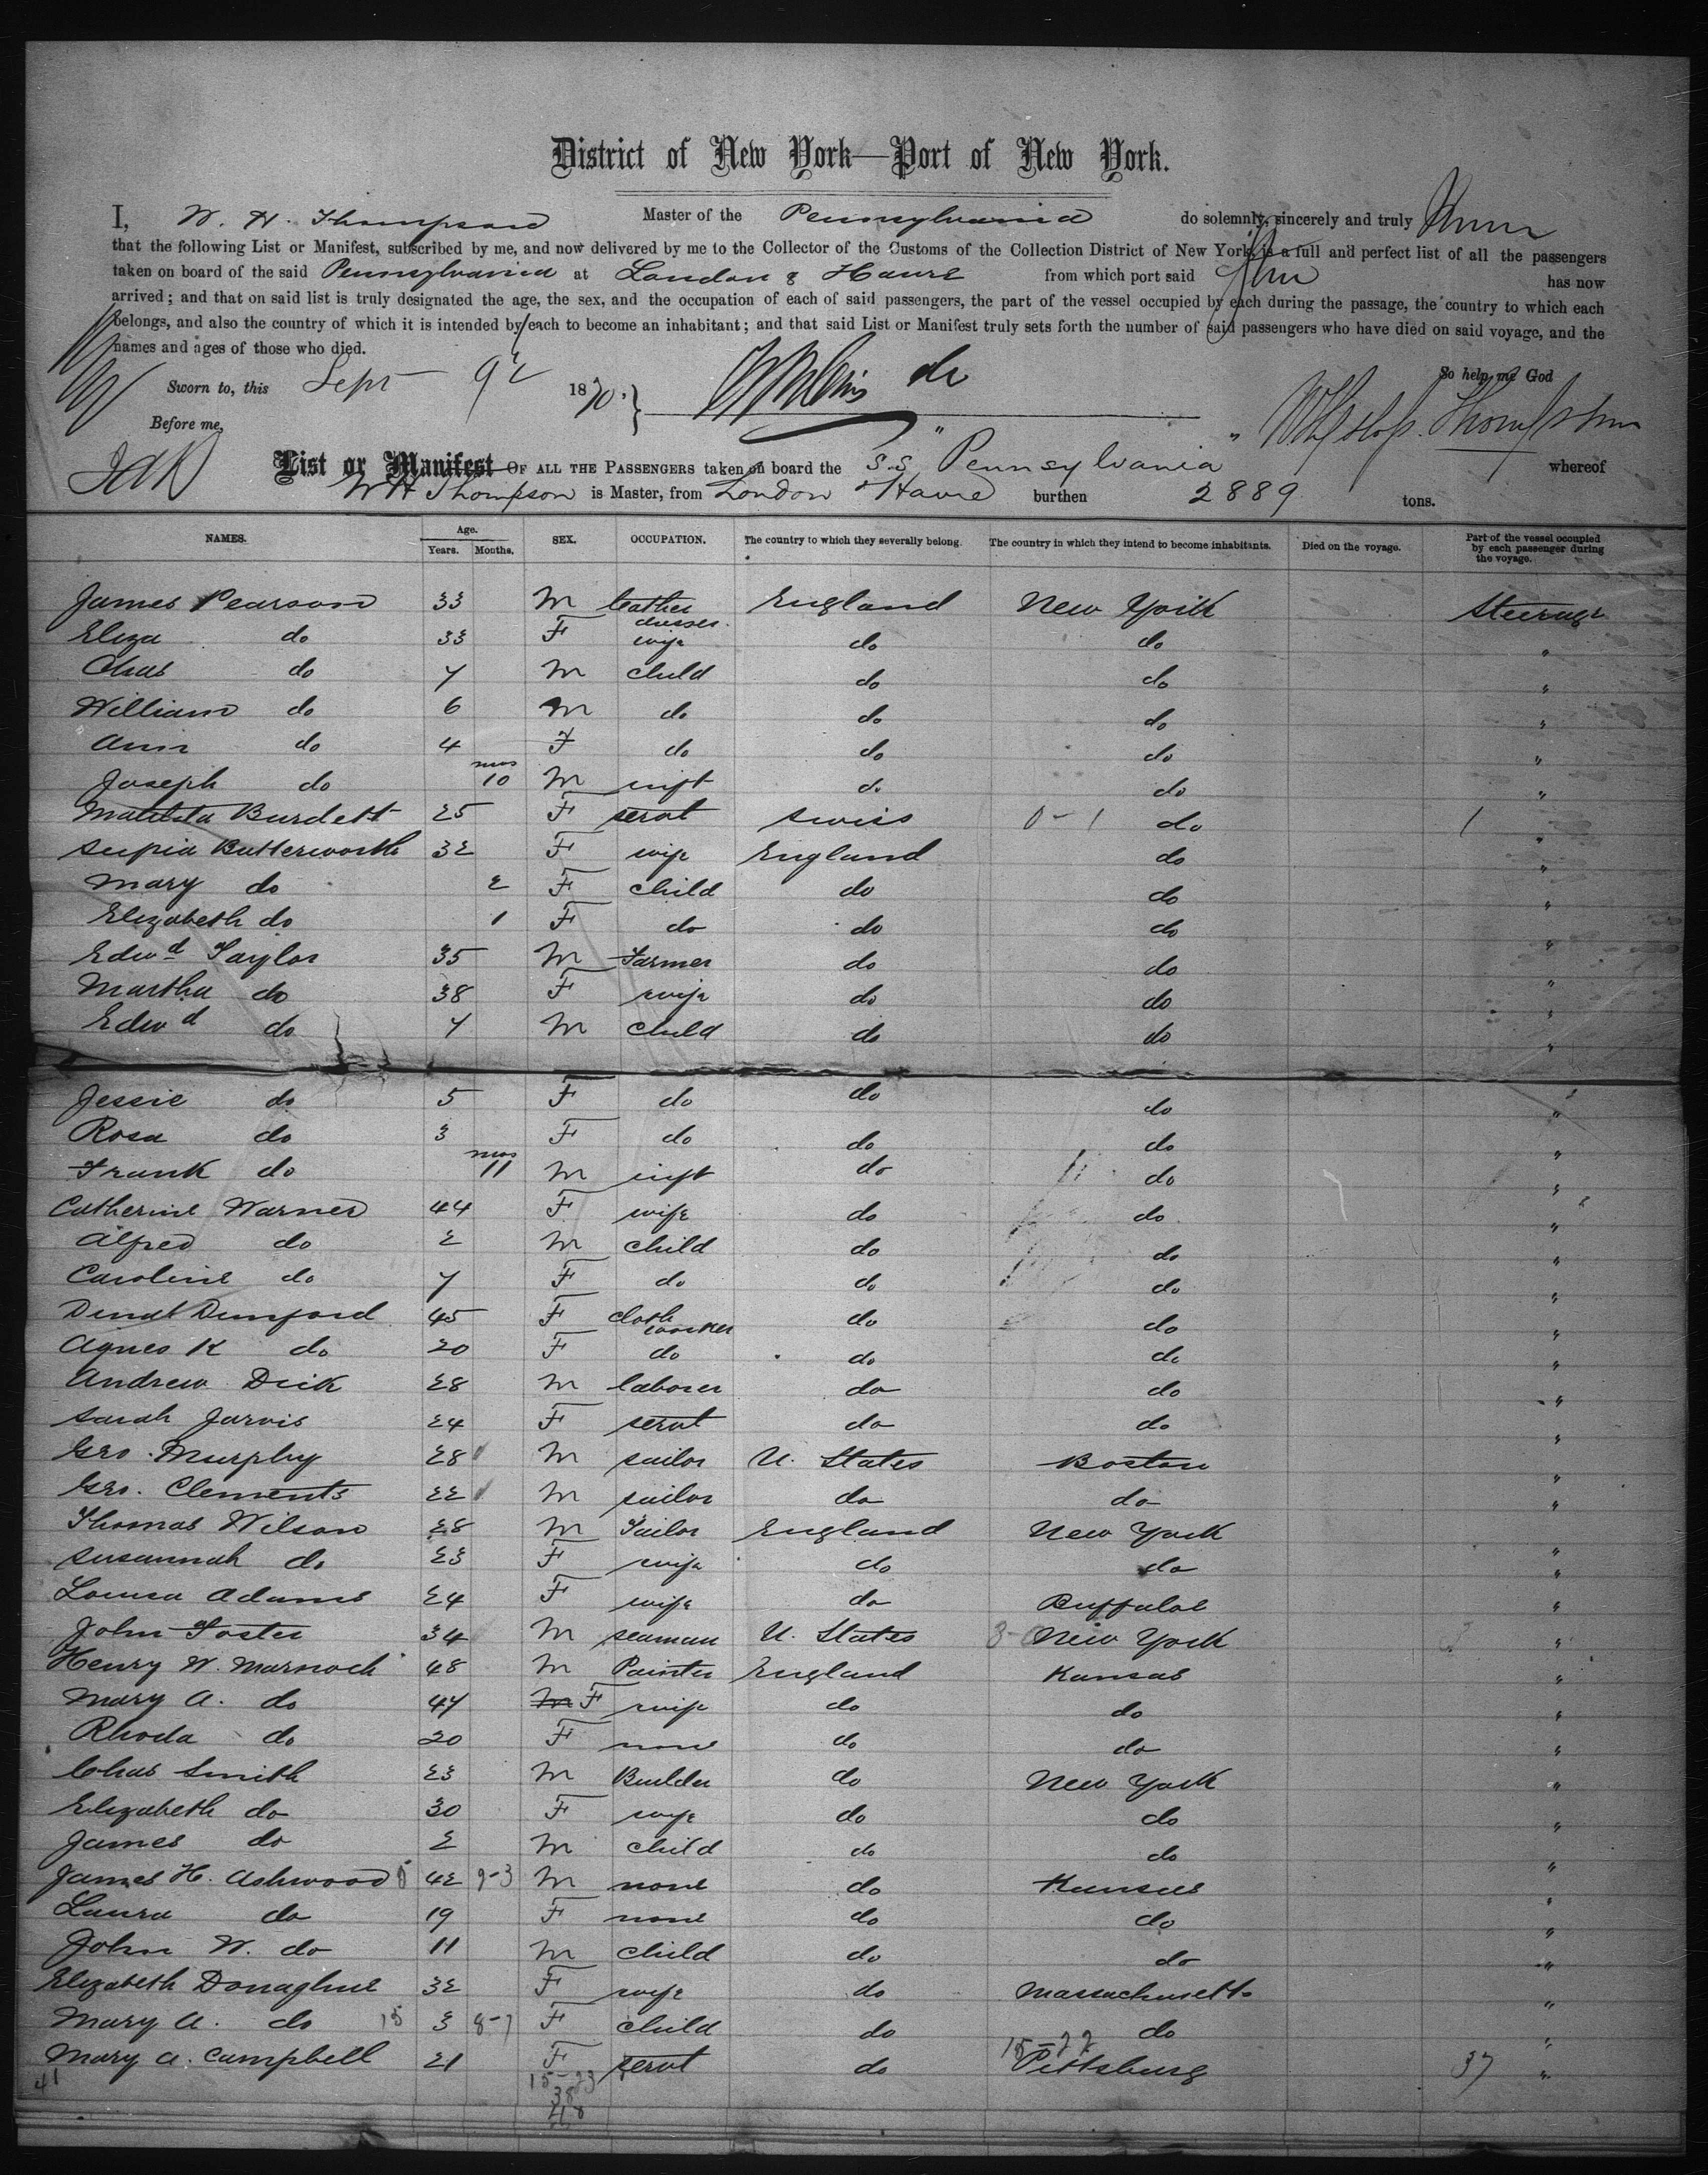 District of New York—Port of New York.
I, W. H. Thompson Master of the Pennsylvania do solemnly, sincerely and truly
that the following List or Manifest, subscribed by me, and now delivered by me to the Collector of the Customs of the Collection District of New York, is a full and perfect list of all the passengers
taken on board of the said Pennsylvania at London & Havre from which port said has now
arrived; and that on said list is truly designated the age, the sex, and the occupation of each of said passengers, the part of the vessel occupied by each during the passage, the country to which each
belongs, and also the country of which it is intended by each to become an inhabitant; and that said List or Manifest truly sets forth the number of said passengers who have died on said voyage, and the
names and ages of those who died.
So help me God
Sworn to, this Sept 9 1870.
Before me,
List or Manifest OF ALL THE PASSENGERS taken on board the S.S. "Pennsylvania" whereof
W H Thompson is Master, from London & Havre burthen 2889 tons.
NAMES. Age. Years. Months. SEX. OCCUPATION. The country to which they severally belong. The country in which they intend to become inhabitants. Died on the voyage. Part of the vessel occupied by each passenger during the voyage.
James Pearson 33 M leather dresser England New York Steerage
Eliza do 33 F wife do do "
Chas do 7 M child do do "
William do 6 M do do do "
Ann do 4 F do do do "
Joseph do mos 10 M inft do do "
Matilda Burdett 25 F servt Swiss 0-1 do 1 "
Butterworth 32 F wife England do "
Mary do 2 F child do do "
Elizabeth do 1 F do do do "
Edwd Taylor 35 M Farmer do do "
Martha do 38 F wife do do "
Edwd do 7 M child do do "
Jessie do 5 F do do do "
Rosa do 3 F do do do "
Frank do mos 11 M inft do do "
Catherine Warner 44 F wife do do "
Alfred do 2 M child do do "
Caroline do 7 F do do do "
Dunford 45 F cloth worker do do "
Agnes K do 20 F do do do "
Andrew Dick 28 M laborer do do "
Sarah Jarvis 24 F servt do do "
Geo. Murphy 28 M sailor U. States Boston "
Geo. Clements 22 M sailor do do "
Thomas Wilson 28 M Tailor England New York "
Susannah do 23 F wife do do "
Louisa Adams 24 F wife do Buffaloe "
John Foster 34 M seaman U. States New York "
Henry W. Marnoch 48 M Painter England Kansas "
Mary A. do 47 M F wife do do "
Rhoda do 20 F none do do "
Chas Smith 23 M Builder do New York "
Elizabeth do 30 F wife do do "
James do 2 M child do do "
James H. Ashwood 42 9-3 M none do Kansas "
Laura do 19 F none do do "
John W. do 11 M child do do "
Elizabeth Donaghue 32 F wife do Massachusetts "
Mary A. do 15 3 8-7 F child do do "
Mary A. Campbell 21 F servt do 15-22 Pittsburg 37 "
41 15-23
38